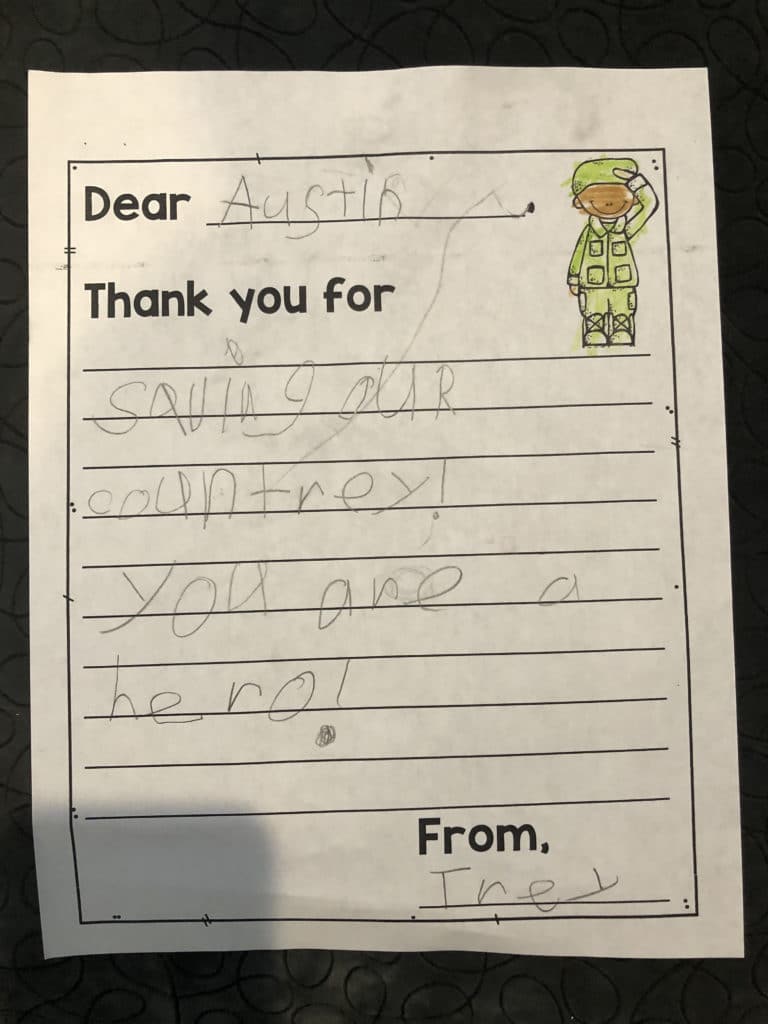 Dear Austin
Thank you for
saving our
countrey!
you are a
hero!
From,
Trey